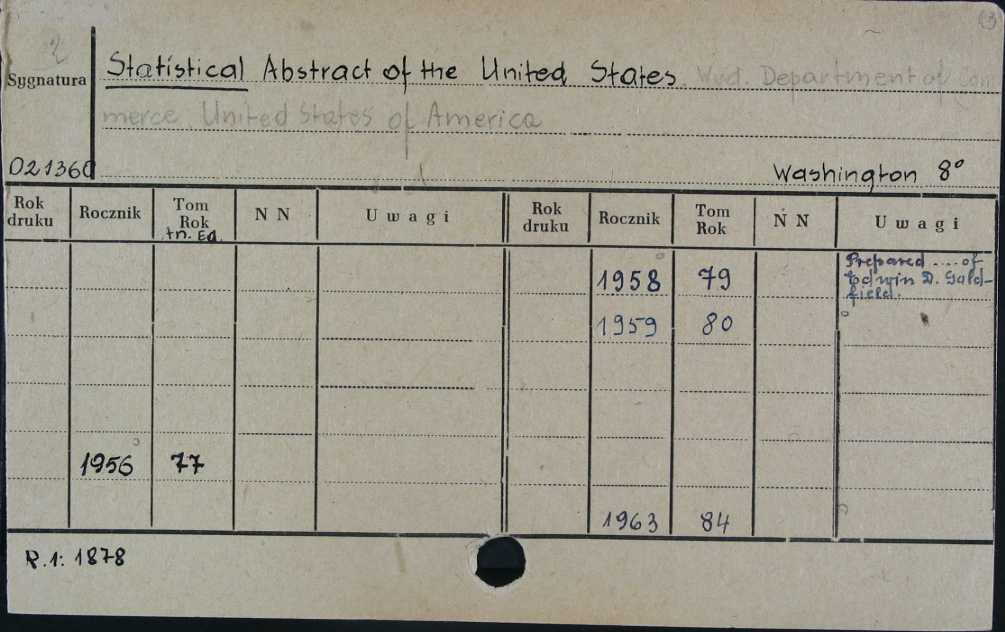 2
Sygnatura
Statistical Abstract of the United States. Wyd. Department of Com
merce United States of America
021360
Washington 8°
Rok druku Rocznik Tom Rok tn. Ed. N N Uwagi Rok druku Rocznik Tom Rok N N Uwagi
1958 79 Prepared .... of
Edwin D. Gold-
field.
1959 80
1956 77
1963 84
R.1: 1878